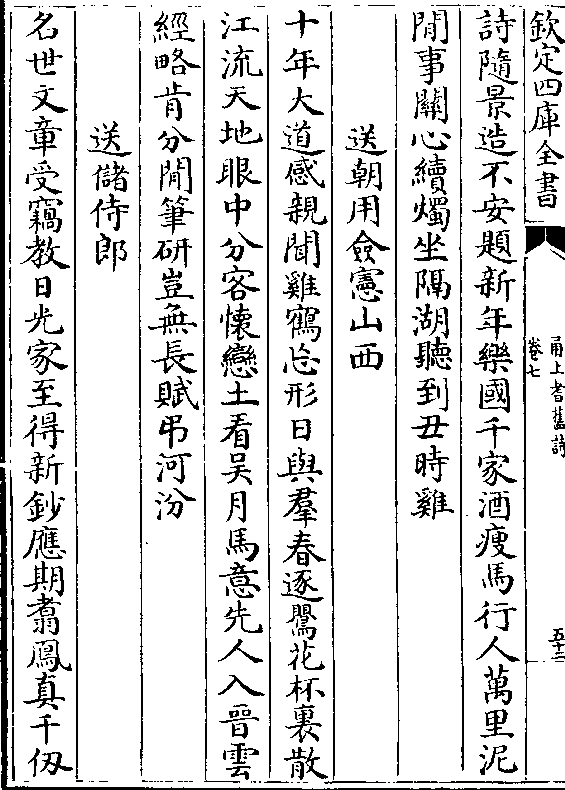 欽定四庫全書
甬上耆舊詩
卷七
五十二
詩隨景造不安題新年樂國千家酒瘦馬行人萬里泥
閒事關心續燭坐隔湖聽到丑時雞
送朝用僉憲山西
十年大道感親聞雞鶴忘形日與羣春逐鶯花杯裏散
江流天地眼中分客懷戀土看吳月馬意先人入晉雲
經略肯分閒筆研豈無長賦弔河汾
送儲侍郎
名世文章受竊教日光家至得新鈔應期翥鳳真千仭